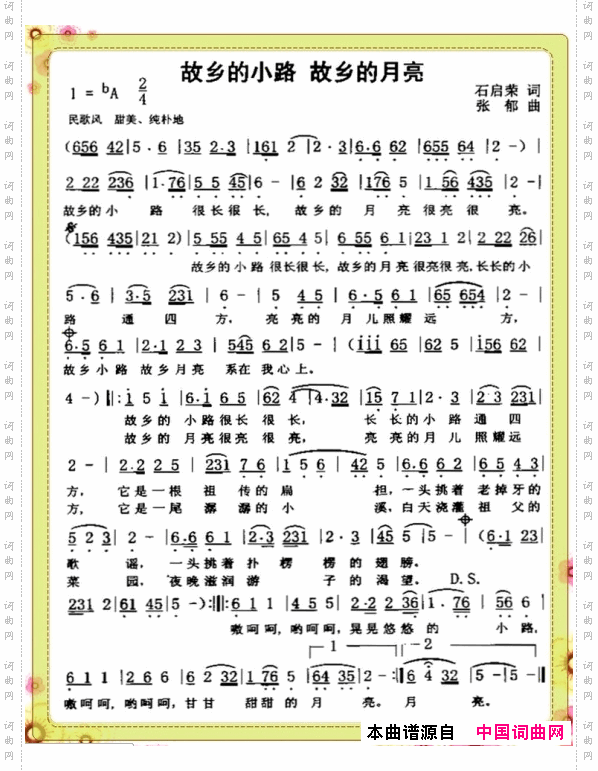 故乡的小路 故乡的月亮
1 = ᵇA 2/4
石启荣 词
张 郁 曲
民歌风 甜美、纯朴地
(656 42|5·6|35 2·3|161 2|2·3|6·6 62|655 64|2 -)|
2 22 236|1·76|5 5 45|6 -|6 2 32|176 5|1 56 435|2 -|
故乡的小 路 很长很长, 故乡的 月 亮很亮很 亮。
(156 435|21 2)|5 55 4 5|65 4 5|6 55 6 1|23 1 2|2 22 26|
故乡的小路很长很长,故乡的月亮很亮很亮,长长的小
5·6|3·5 231|6 -|5 4 5|6·5 61|65 654|2 -|
路 通 四 方, 亮亮的 月 儿照耀 远 方,
6·5 6 1|2·1 2 3|545 6 2|5 -|(iii 65|62 5|i56 62|
故乡小路 故乡月亮 系在 我心上。
4 -)‖:i5 i|6·i 65|62 4|4·32|15 7 1|2·3|2 231|
故乡的 小路很长 很长, 长长的小路通四
故乡的 月亮很亮 很亮, 亮亮的月儿照耀远
2 -|2·2 2 5|231 7 6|1 5 6|42 5|6·6 6 2|6 5 4 3|
方, 它是一根 祖 传的 扁 担,一头挑着 老掉牙的
方, 它是一尾 潺 潺的小 溪,白天浇灌 祖 父的
5 2 3|2 -|6·6 1 2|2·3 231|2·3|45 5|5 -|(6·1 23|
歌 谣, 一头挑着 扑 楞 楞的 翅 膀。
菜 园, 夜晚滋润游 子的 渴 望。 D.S.
231 2|61 45|5 -):‖:6 1 1|4 5 5|2·2 2 36|1·76|56 6|
嗷呵呵,哟呵呵,晃晃悠悠 的 小 路,
1 2
6 1 1|2 6 1|2·2 6|5 6 1|64 35|2 -:‖6 4 32|5 -|5 -‖
嗷呵呵,哟呵呵,甘甘 甜甜的 月 亮。月 亮。
本曲谱源自 中国词曲网
词曲网